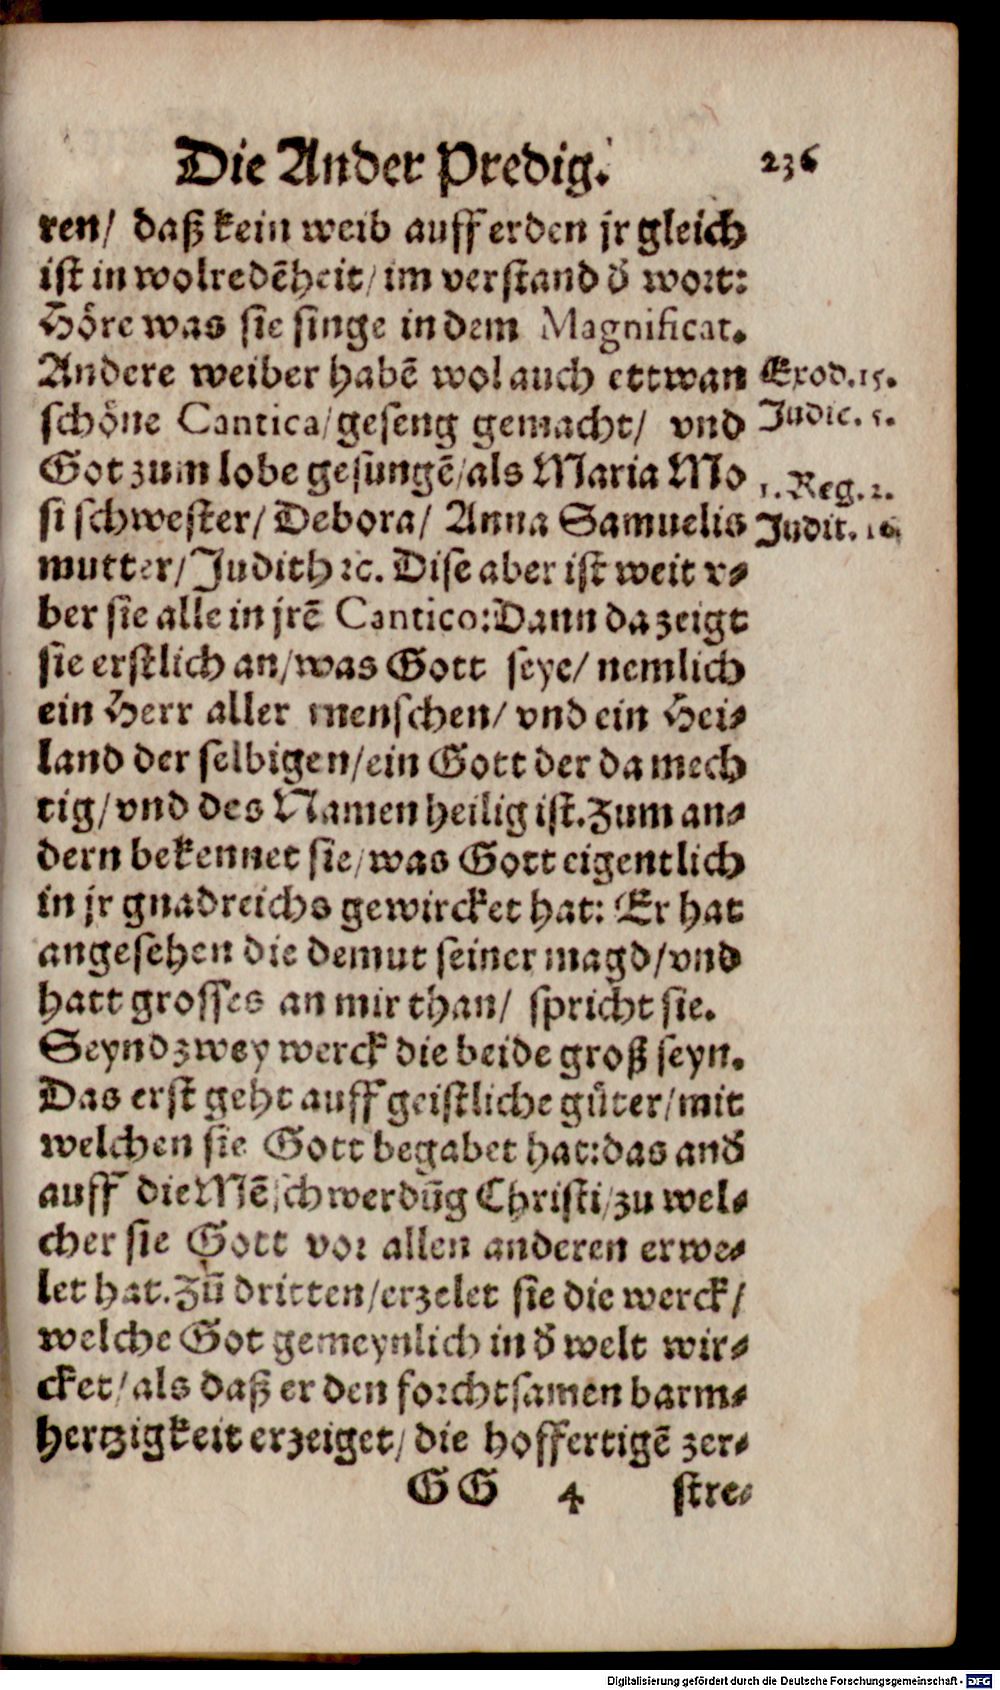 Die Ander Predig. 236
ren/ daß kein weib auff erden jr gleich
ist in wolredẽheit/im verstand d̓ wort:
Höre was sie singe in dem Magnificat.
Andere weiber habẽ wol auch ettwan
schöne Cantica/geseng gemacht/ vnd
Got zum lobe gesungẽ/als Maria Mo
si schwester/ Debora/ Anna Samuelis
mutter/Judith ꝛc. Dise aber ist weit v-
ber sie alle in jrẽ Cantico:Dann da zeigt
sie erstlich an/was Gott seye/ nemlich
ein Herr aller menschen/ vnd ein Hei-
land der selbigen/ein Gott der da mech
tig/vnd des Namen heilig ist.Zum an-
dern bekennet sie/was Gott eigentlich
in jr gnadreichs gewircket hat: Er hat
angesehen die demut seiner magd/vnd
hatt grosses an mir than/ spricht sie.
Seynd zwey werck die beide groß seyn.
Das erst geht auff geistliche gůter/mit
welchen sie Gott begabet hat:das and̓
auff die Mẽschwerdũg Christi/zu wel-
cher sie Gott vor allen anderen erwe-
let hat.Zũ dritten/erzelet sie die werck/
welche Got gemeynlich in d̓ welt wir-
cket/als daß er den forchtsamen barm-
hertzigkeit erzeiget/ die hoffertigẽ zer-
GG 4 stre-
Exod.15.
Judic. 5.
1. Reg. 2.
Judit. 16
Digitalisierung gefördert durch die Deutsche Forschungsgemeinschaft - DFG